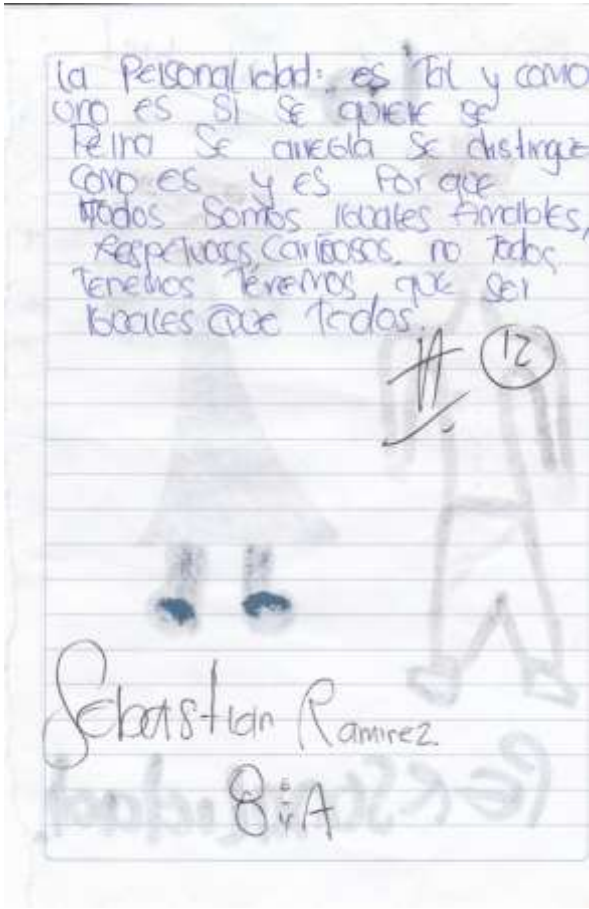 la Personalidad: es Tal y como
uno es si se quiere se
Peina Se arregla Se distingue
como es y es Por que
todos Somos iguales Amables,
Respetuosos, Cariñosos, no todos
tenemos Tenemos que ser
iguales que todos.
12
Sebastian Ramirez.
8 A
PERSONALIDAD